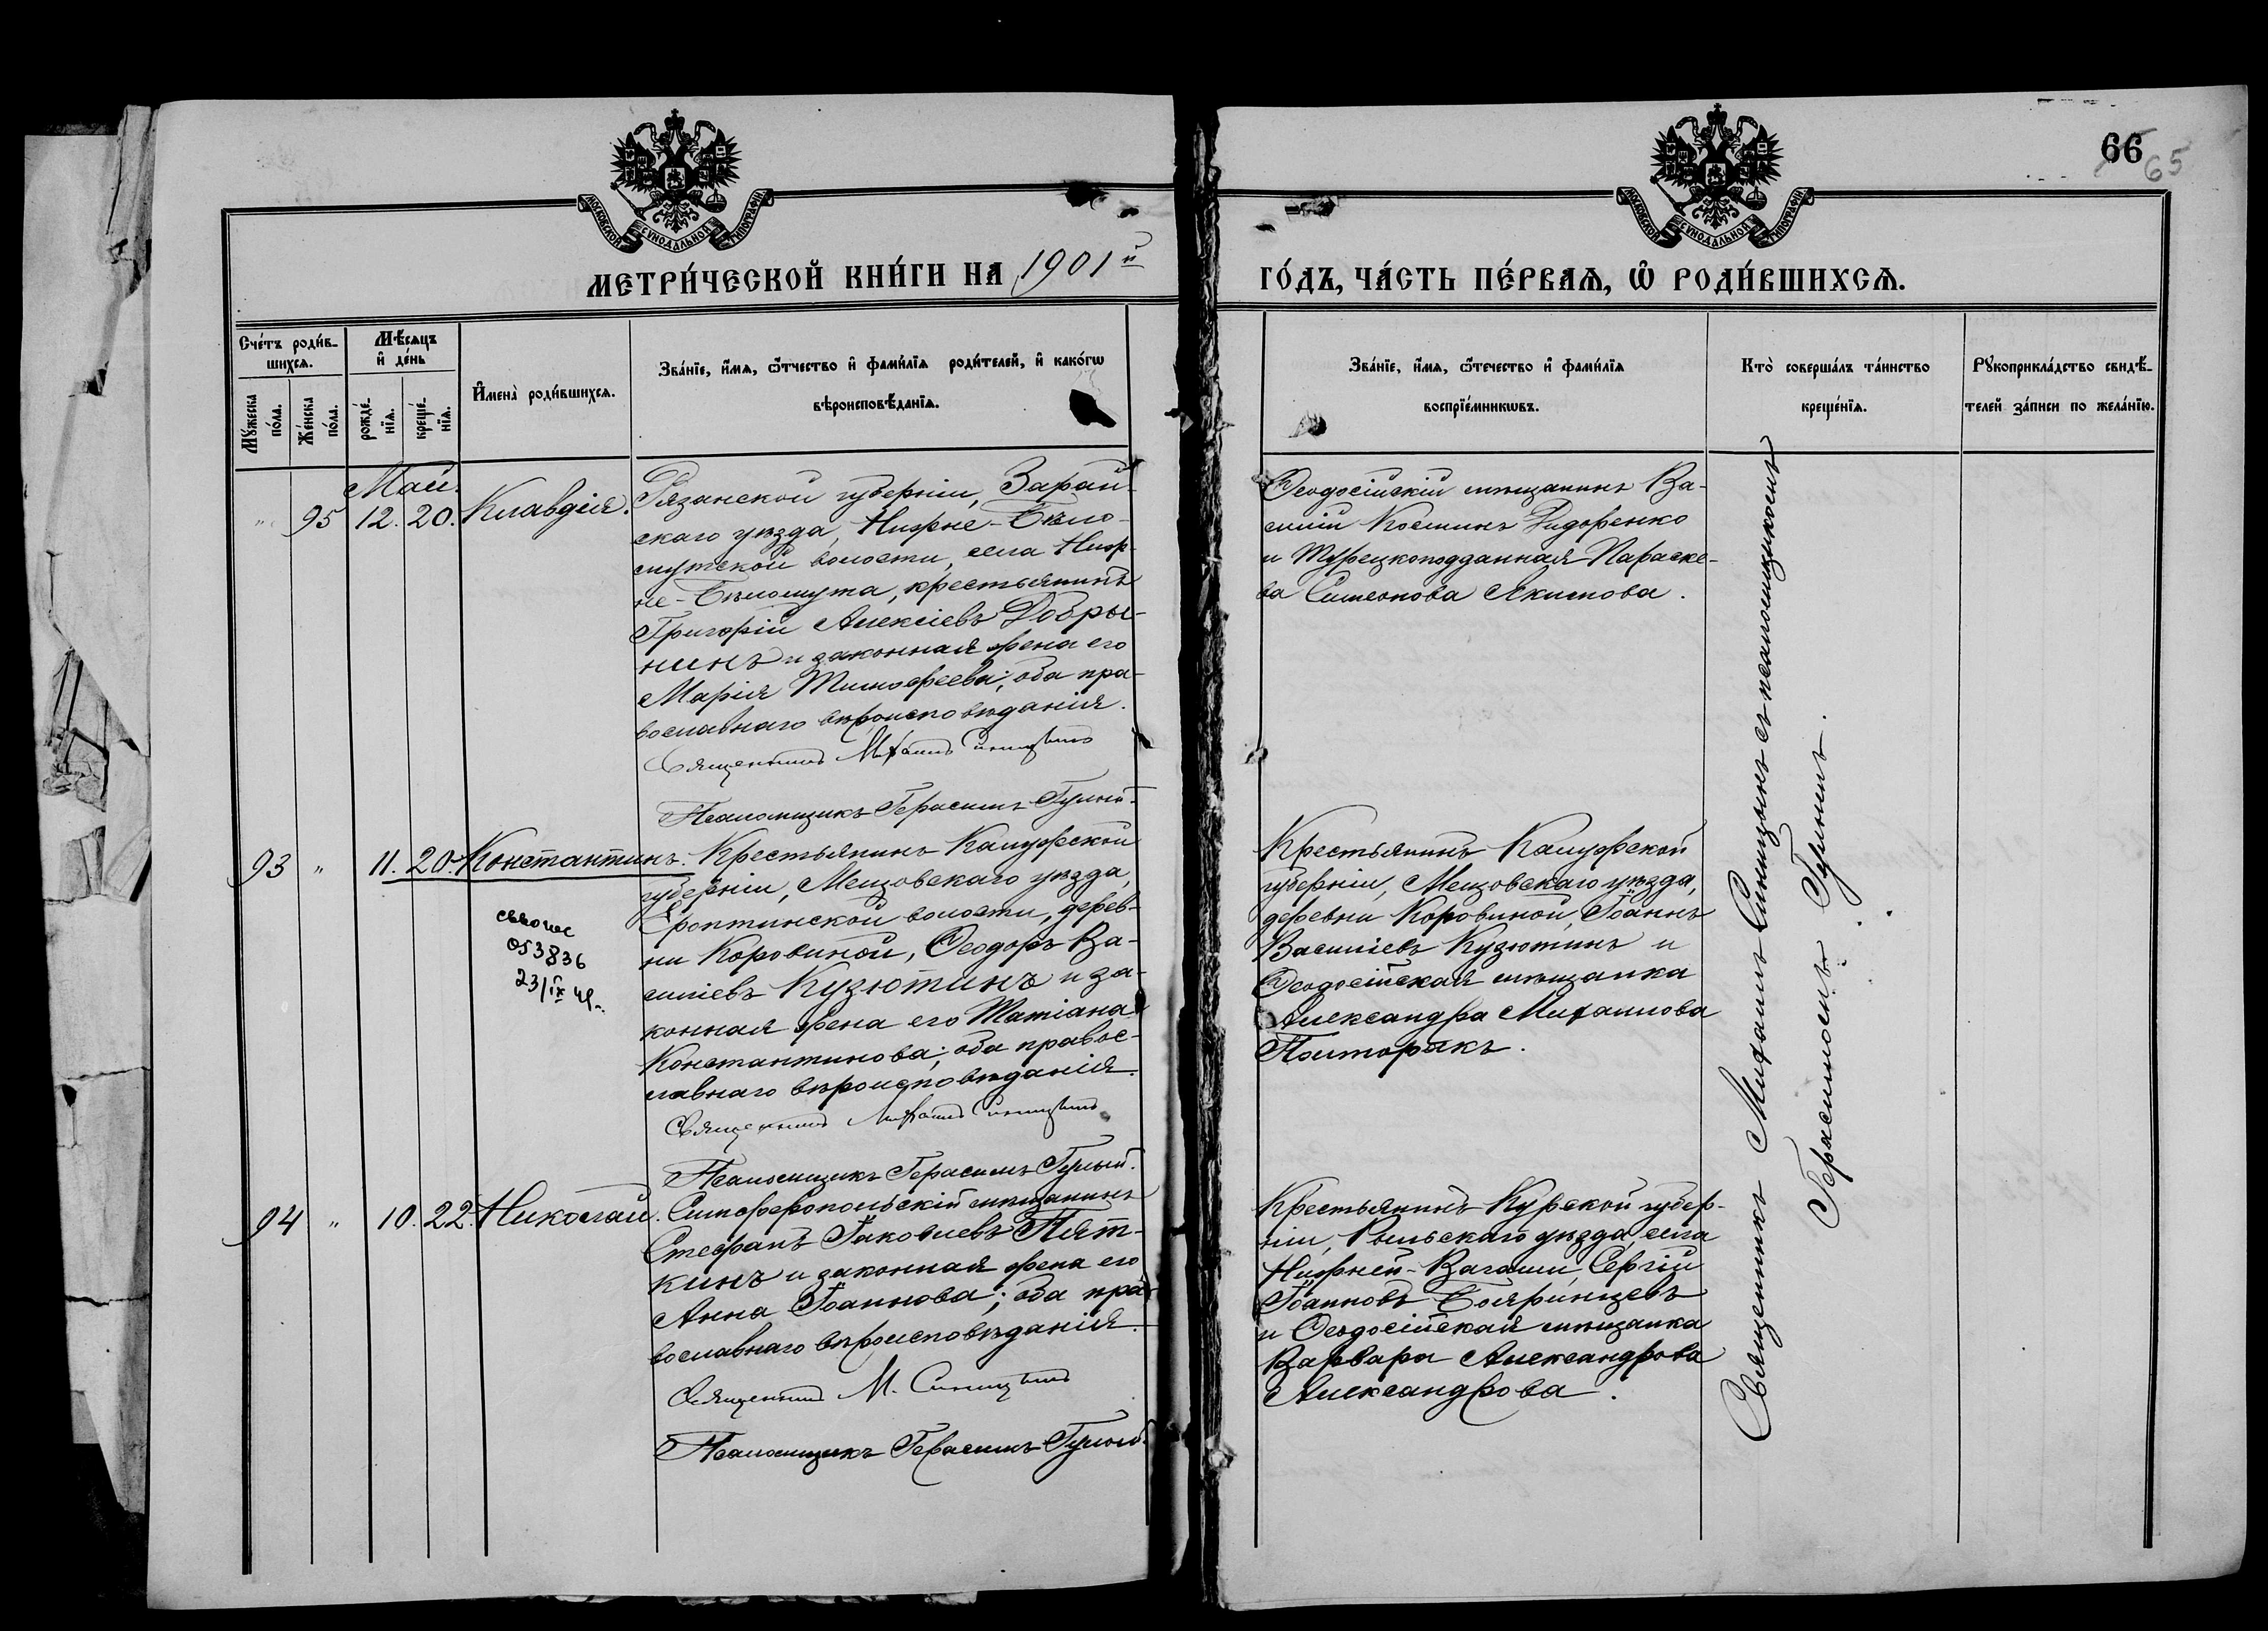 66
65
МОСКОВСКОЙ СѴНОДАЛЬНОЙ ТИПОГРАФІИ
МОСКОВСКОЙ СѴНОДАЛЬНОЙ ТИПОГРАФІИ
МЕТРИ́ЧЕСКОЙ КНИ́ГИ НА 1901й
ГО́ДЪ, ЧА́СТЬ ПЕ́РВАѦ, Ѡ҆ РОДИ́ВШИХСѦ.
Сче́тъ роди́в-
шихсѧ.
Мꙋ́жеска по́ла.
Же́нска по́ла.
Мѣ́сѧцъ
и҆ де́нь
рожде́-
нїѧ.
креще́-
нїѧ.
И҆мена̀ роди́вшихсѧ.
Зва́нїе, и҆́мѧ, ѻ҆́тчество и҆ фами́лїѧ роди́телей, и҆ како́гѡ
вѣроисповѣ́данїѧ.
Зва́нїе, и҆́мѧ, ѻ҆́течество и҆ фами́лїѧ
воспрїе́мникѡвъ.
Кто̀ соверша́лъ та́инство
креще́нїѧ.
Рꙋкоприкла́дство свидѣ́-
телей за́писи по жела́нїю.
Май.
" 95 12. 20. Клавдія.
Рязанской губерніи, Зарай-
скаго уѣзда, Нижне-Бѣло-
омутской волости, села Ниж-
не-Бѣлоомута, крестьянинъ
Григорій Алексіевъ Добры-
нинъ и законная жена его
Марія Тимофеева; оба пра-
вославнаго вѣроисповѣданія.
Священникъ Михаилъ Синицынъ
Псаломщикъ Герасимъ Гулый.
Ѳеодосійскій мѣщанинъ Ва-
силій Косминъ Дидоренко
и Турецкоподданная Параске-
ва Симеонова Якимова.
93 " 11. 20. Константинъ.
Крестьянинъ Калужской
губерніи, Мещовскаго уѣзда,
Ероптинской волости, дерев-
ни Коровиной, Ѳеодоръ Ва-
силіевъ Кузютинъ и за-
конная жена его Татіана
Константинова; оба правос-
лавнаго вѣроисповѣданія.
Священникъ Михаилъ Синицынъ
Псаломщикъ Герасимъ Гулый.
053836
23/IX
Крестьянинъ Калужской
губерніи, Мещовскаго уѣзда,
деревни Коровиной, Іоаннъ
Василіевъ Кузютинъ и
Ѳеодосійская мѣщанка
Александра Михаилова
Полторакъ.
94 " 10. 22. Николай.
Симферопольскій мѣщанинъ
Стефанъ Іаковлевъ Пят-
кинъ и законная жена его
Анна Іоаннова; оба пра-
вославнаго вѣроисповѣданія.
Священникъ М. Синицынъ
Псаломщикъ Герасимъ Гулый.
Крестьянинъ Курской губер-
ніи, Рыльскаго уѣзда, села
Сергій
Іоанновъ Бояринцевъ
и Ѳеодосійская мѣщанка
Варвара Александрова
Александрова.
Священникъ Михаилъ Синицынъ съ псаломщикомъ
Герасимомъ Гулымъ.